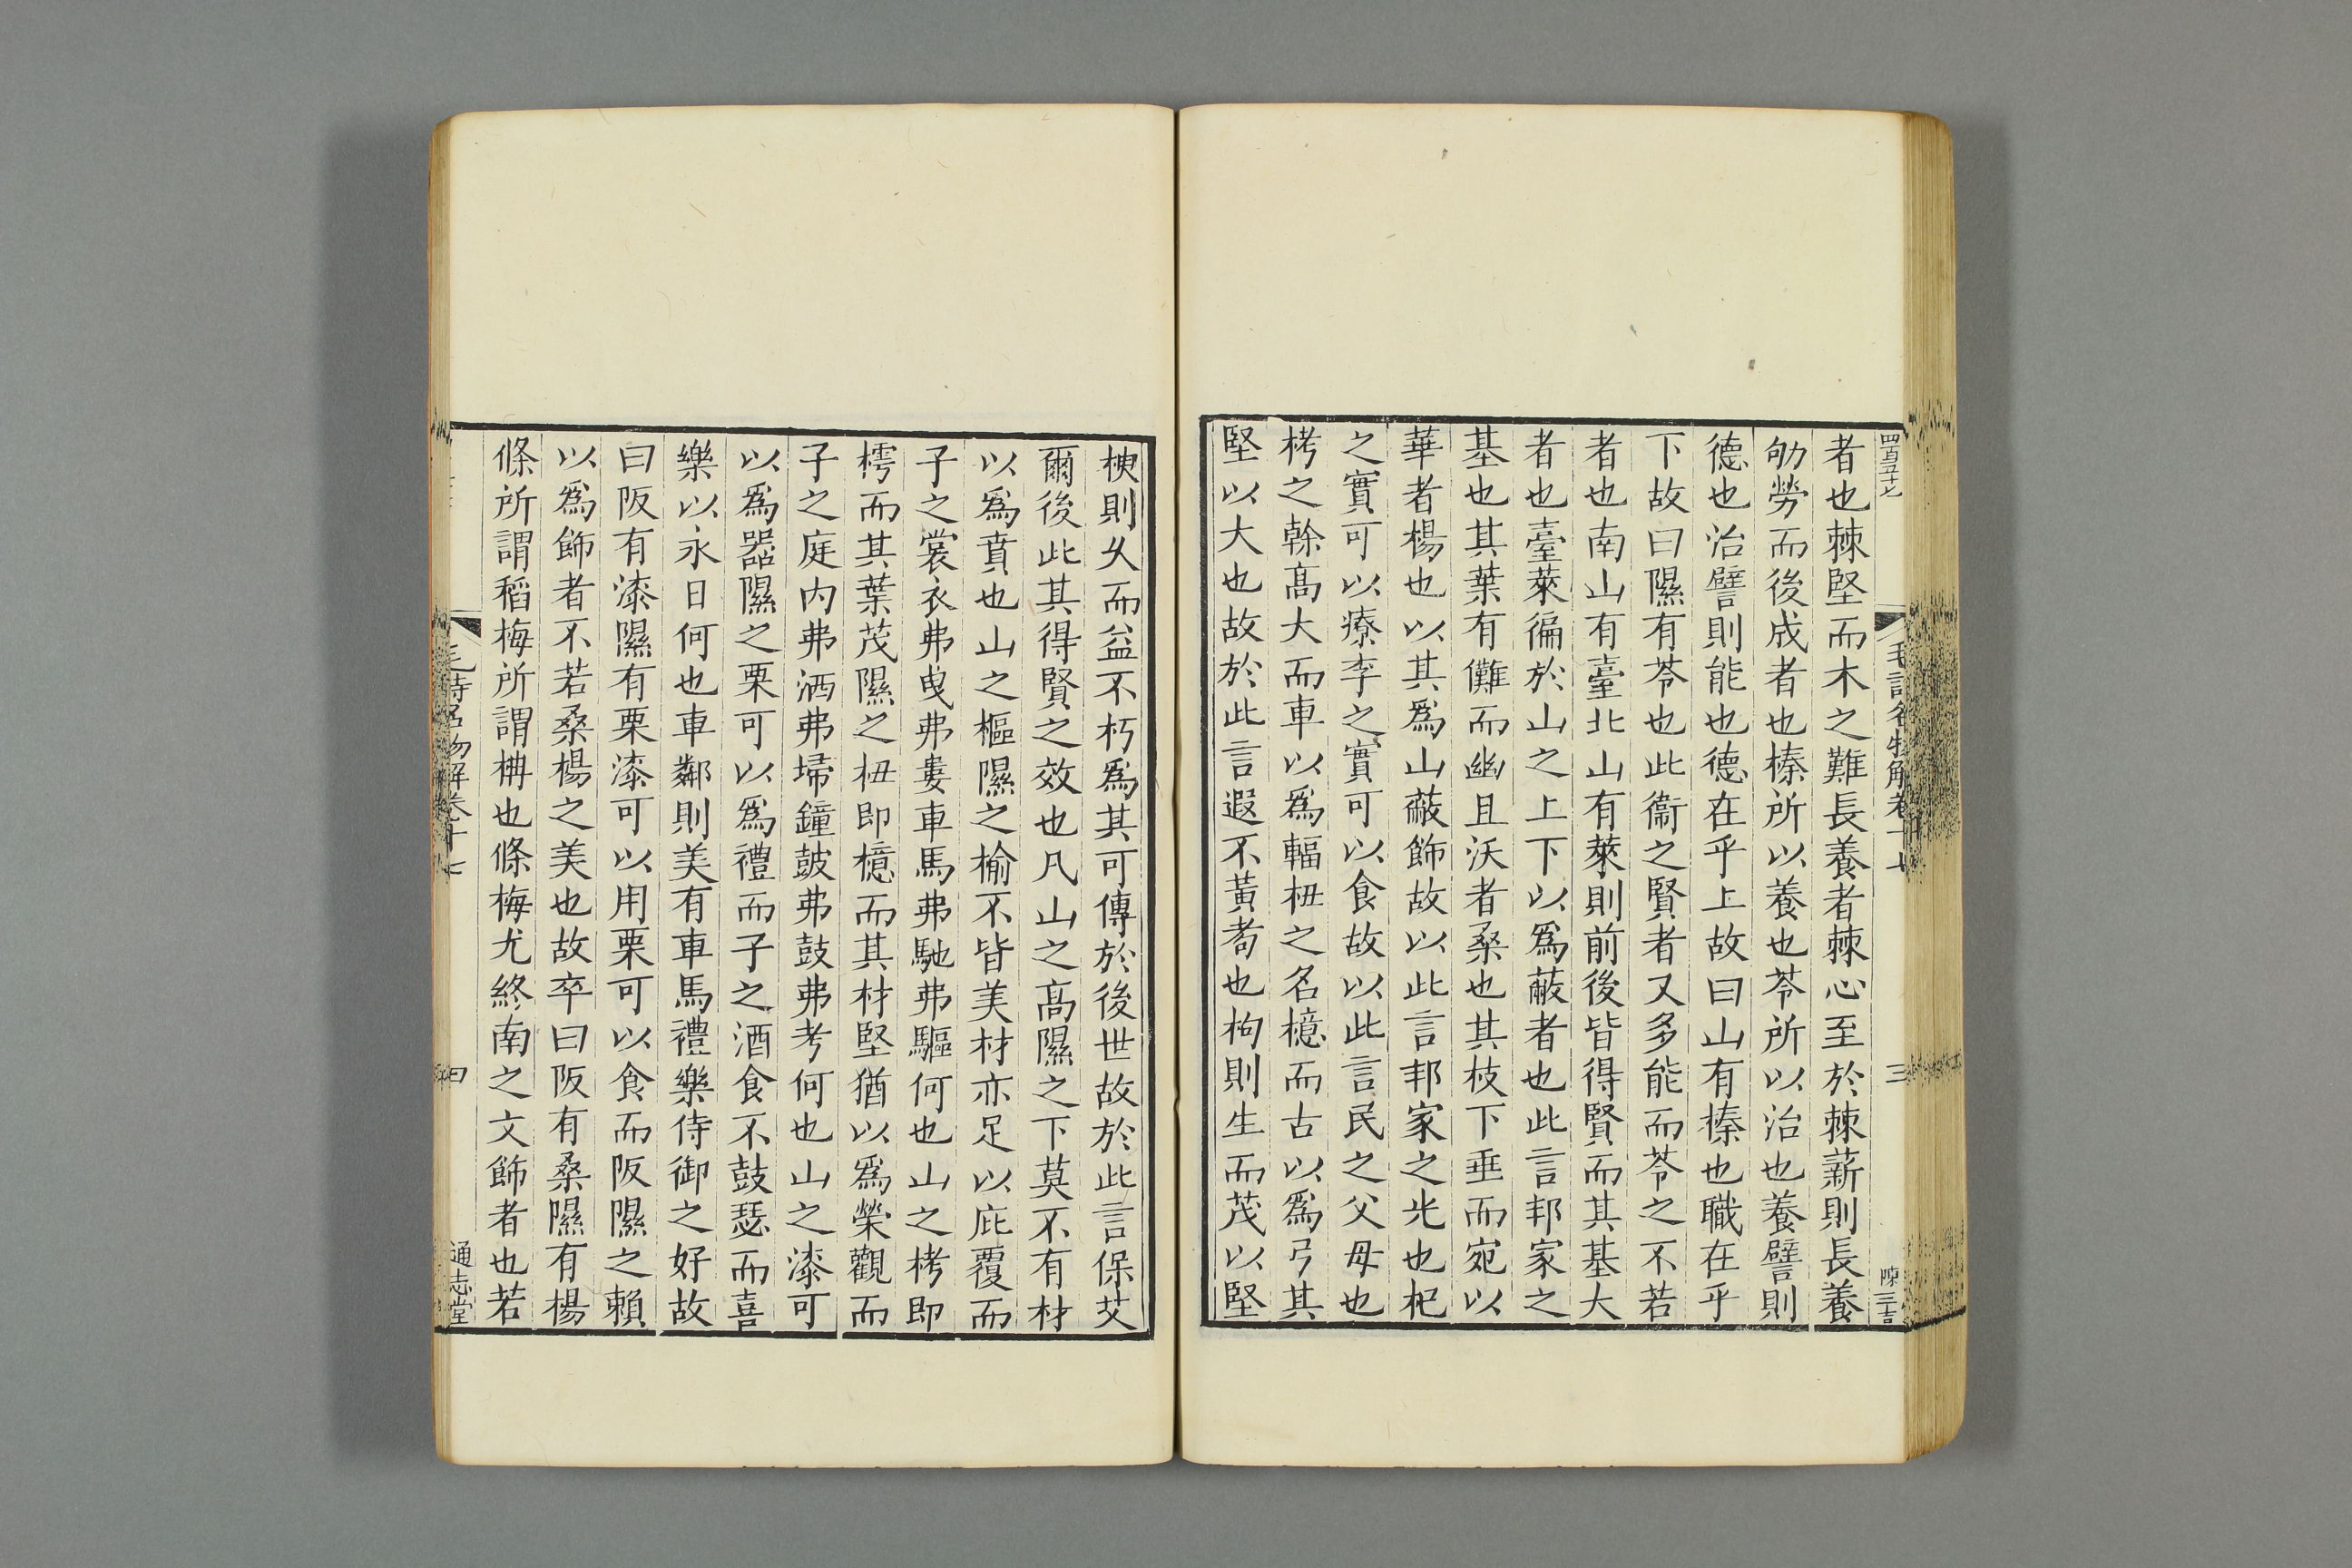 四百五十七
毛詩名物解卷十七
三
陳三吉
者也棘堅而木之難長養者棘心至於棘薪則長養
劬勞而後成者也榛所以養也苓所以治也養譬則
德也治譬則能也德在乎上故曰山有榛也職在乎
下故曰隰有苓也此衞之賢者又多能而苓之不若
者也南山有臺北山有萊則前後皆得賢而其基大
者也臺萊徧於山之上下以爲蔽者也此言邦家之
基也其葉有儺而幽且沃者桑也其枝下垂而宛以
華者楊也以其爲山蔽飾故以此言邦家之光也杞
之實可以療李之實可以食故以此言民之父母也
栲之榦髙大而車以爲輻杻之名檍而古以爲弓其
堅以大也故於此言遐不黃耇也枸則生而茂以堅
楰則久而益不朽爲其可傳於後世故於此言保艾
爾後此其得賢之效也凡山之髙隰之下莫不有材
以爲賁也山之樞隰之榆不皆美材亦足以庇覆而
子之裳衣弗曵弗婁車馬弗馳弗驅何也山之栲即
樗而其葉茂隰之杻即檍而其材堅猶以爲榮觀而
子之庭内弗洒弗埽鐘皷弗鼓弗考何也山之漆可
以爲器隰之栗可以爲禮而子之酒食不鼓瑟而喜
樂以永日何也車鄰則美有車馬禮樂侍御之好故
曰阪有漆隰有栗漆可以用栗可以食而阪隰之賴
以爲飾者不若桑楊之美也故卒曰阪有桑隰有楊
條所謂稻梅所謂柟也條梅尤終南之文飾者也若
毛詩名物解卷十七
四
通志堂